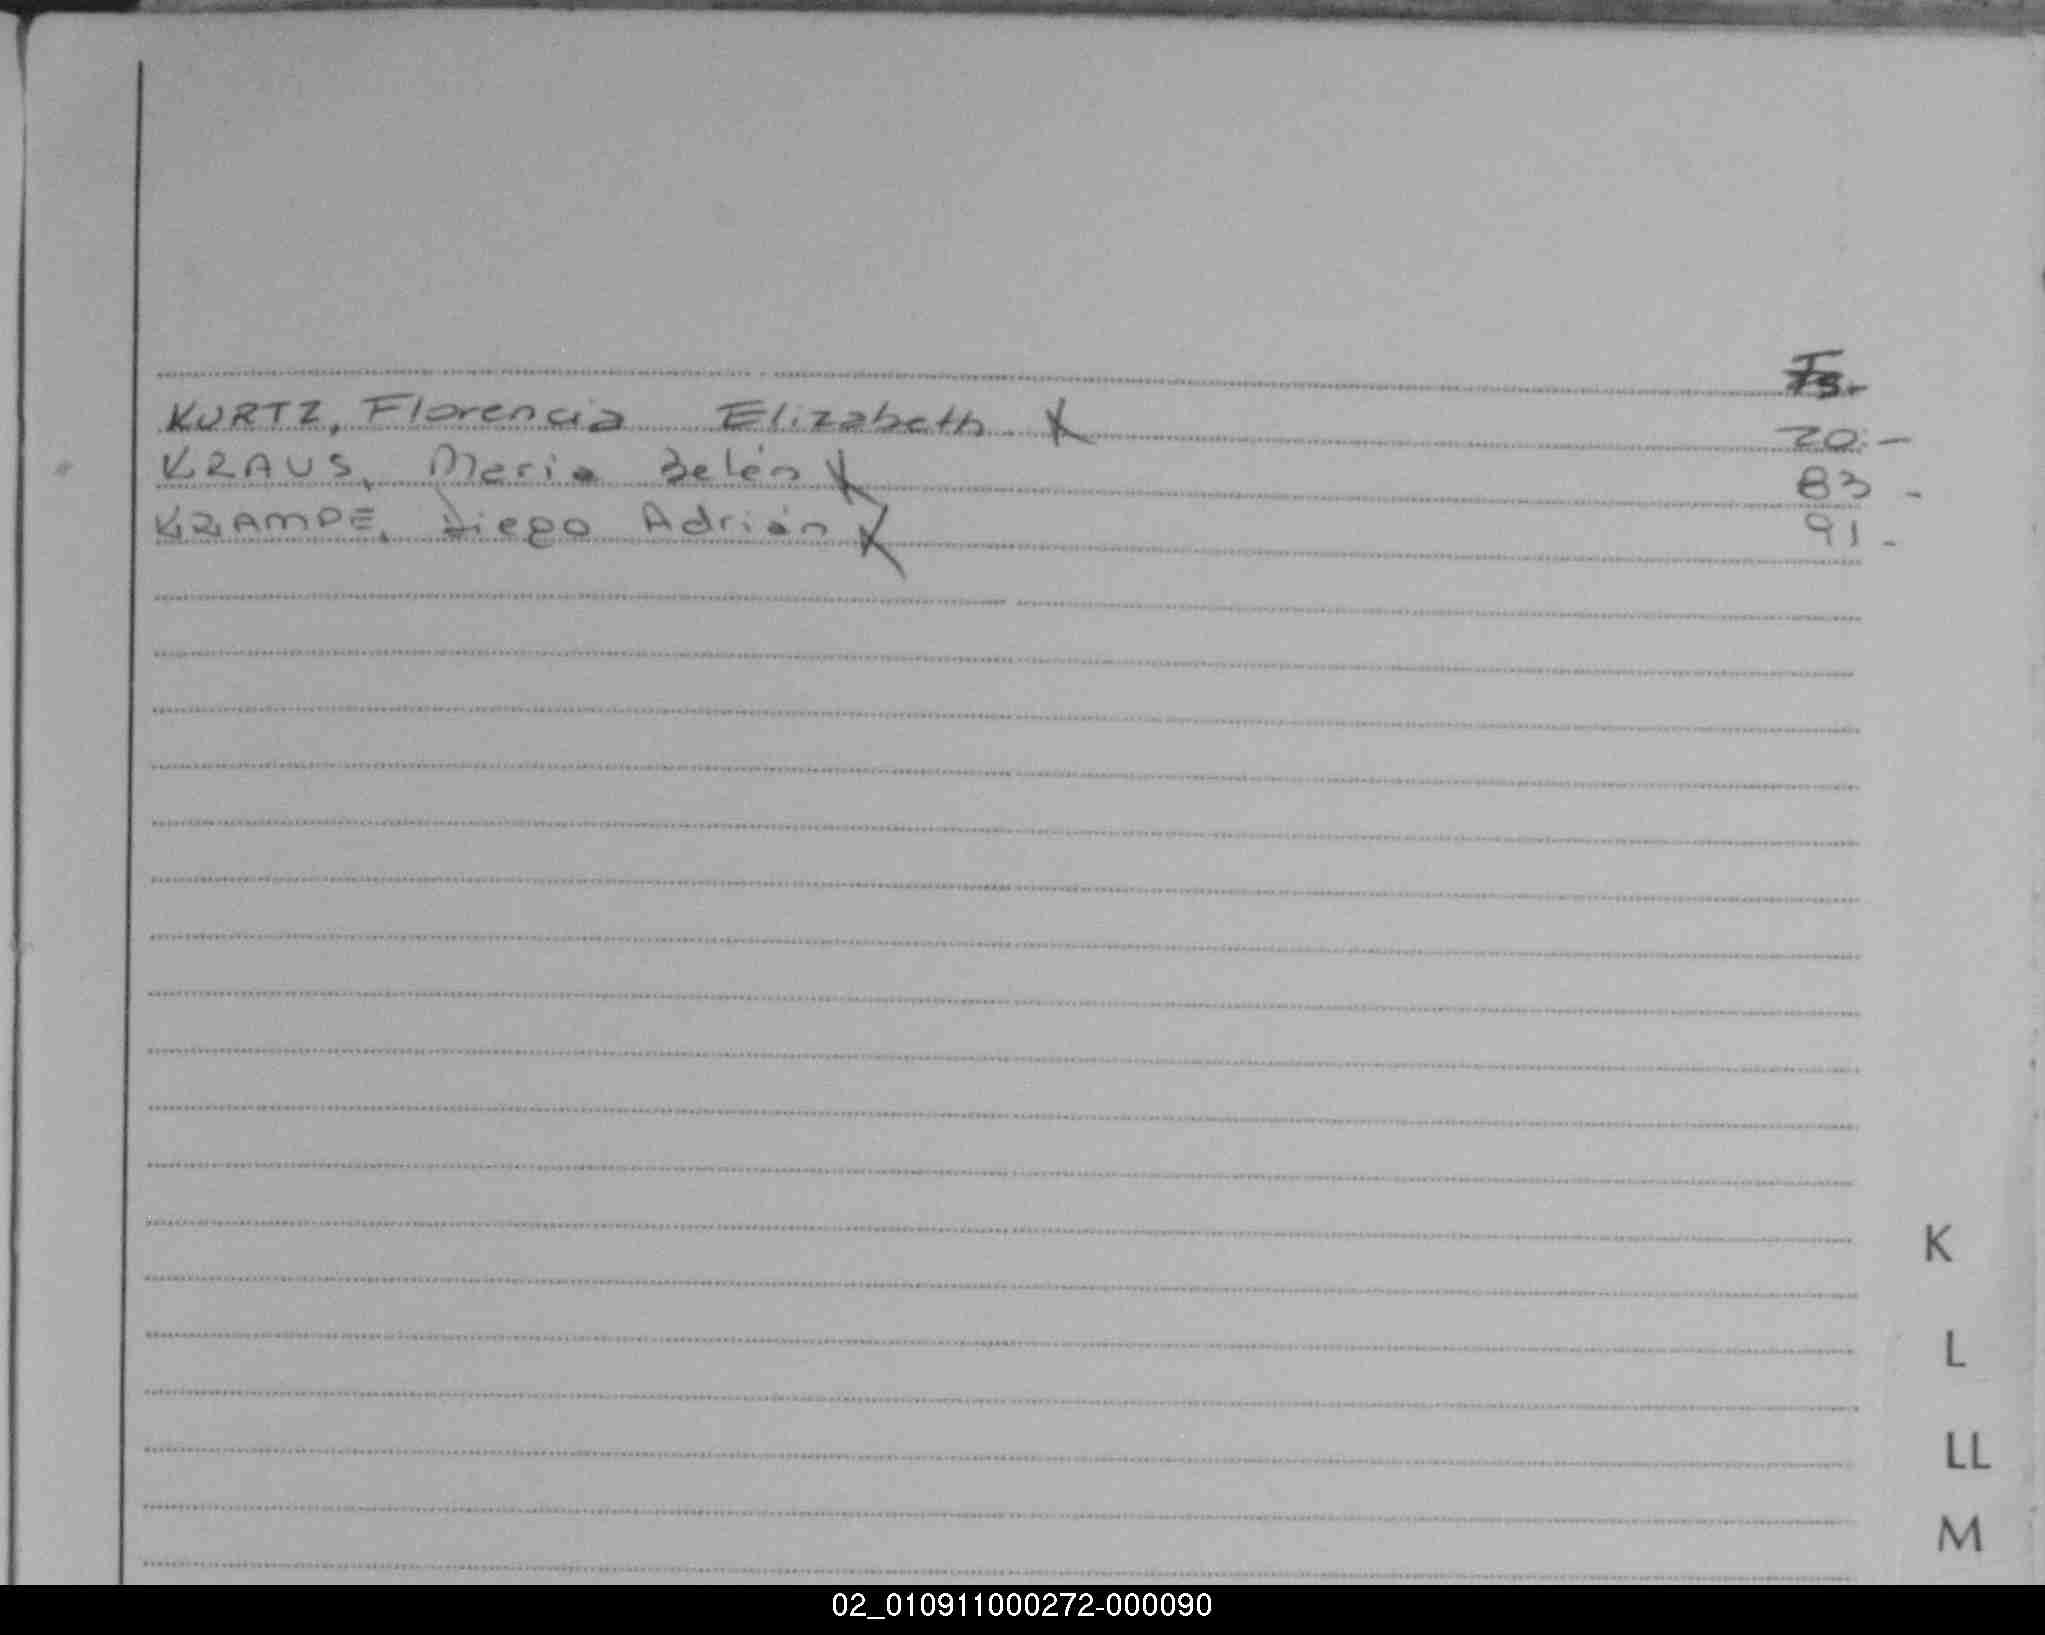 Fs.
KURTZ, Florencia Elizabeth X 20.-
KRAUS, María Belén X 83 -
KRAMPE, Diego Adrián X 91 -
K
L
LL
M
02_010911000272-000090